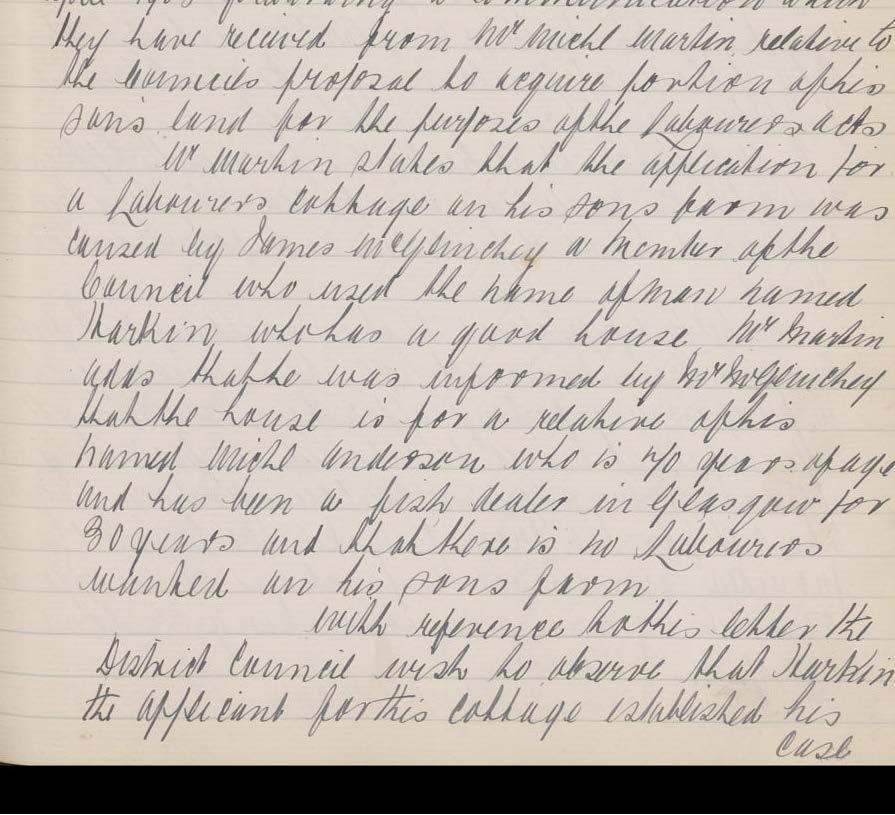 they have received from Mr Michl Martin relative to
the Councils proposal to acquire portion of his
sons land for the purposes of the Labourers acts
Mr Martin states that the application for
a Labourers cottage on his sons farm was
caused by James McGlinchey a member of the
Council who used the name of man named
Harkin who has a good house Mr Martin
adds that he was informed by Mr McGlinchey
that the house is for a relative of his
named Michl Anderson who is 70 years of age
and has been a fish dealer in Glasgow for
30 years and that there is no Labourers
wanted on his sons farm
with reference to this letter the
District Council wish to observe that Harkin
the applicant for this cottage established his
case